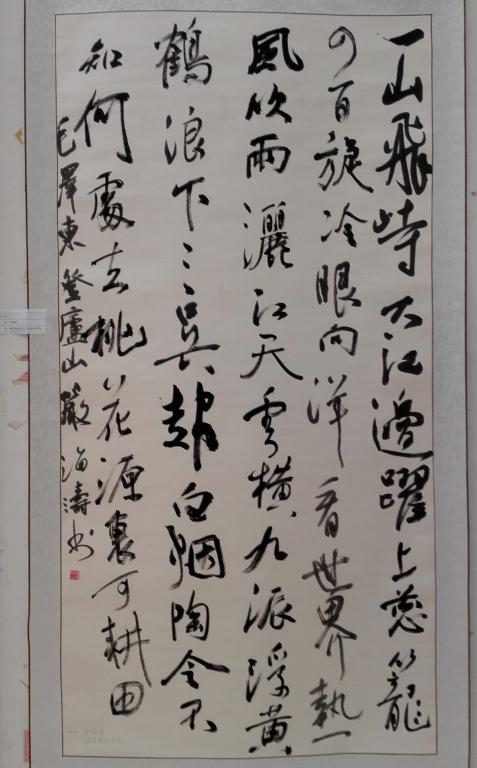 一山飛峙大江邊躍上葱蘢
四百旋冷眼向洋看世界熱
風吹雨灑江天雲横九派浮黄
鶴浪下三吳起白烟陶令不
知何處去桃花源裏可耕田
毛澤東登廬山嚴海濤书